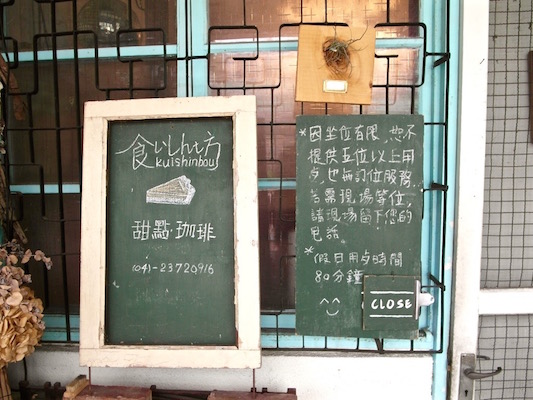 食いしん坊
kuishinbou
甜點.珈琲
(04)-23720916
*因坐位有限,恕不
提供五位以上用
歺,也無訂位服務..
若需現場等位,
請現場留下您的
電話。
*假日用歺時間
80分鐘
CLOSE